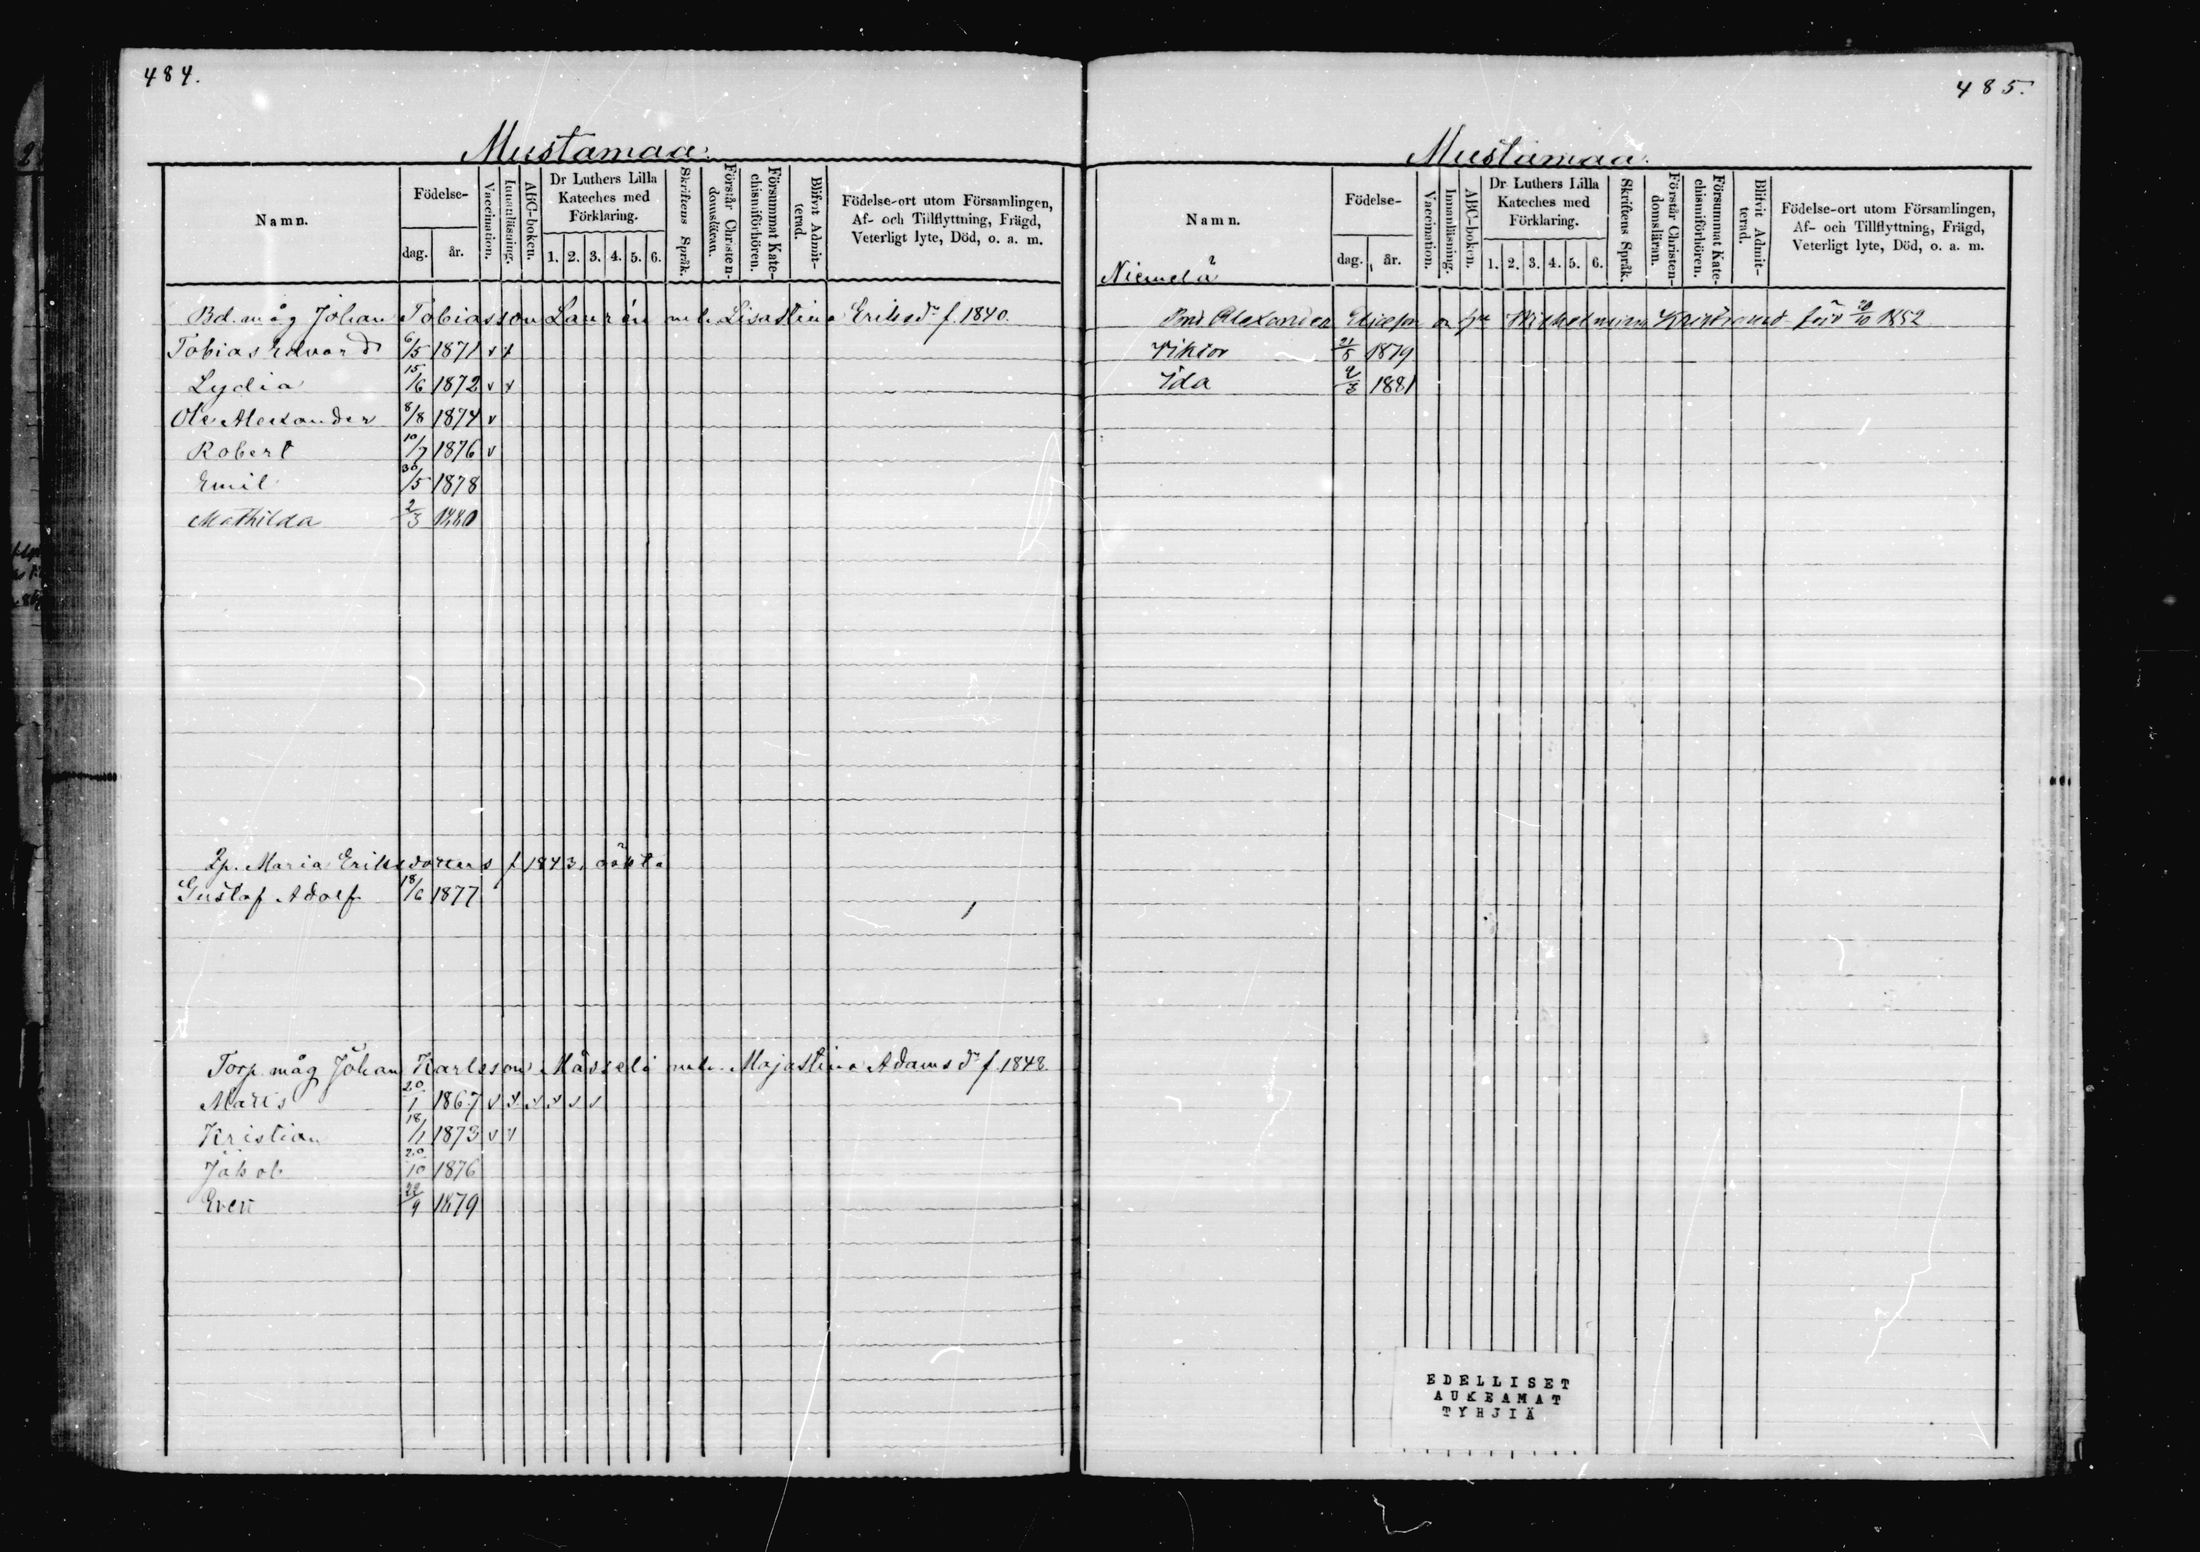 484.
Mustamaa.
Namn.
Födelse-
dag. år.
Vaccination.
Innanläsning.
ABC-boken.
Dr Luthers Lilla
Kateches med
Förklaring.
1. 2. 3. 4. 5. 6.
Skriftens Språk.
Förstår Christen-
domsläran.
Försummat Kate-
chismiförhören.
Blifvit Admit-
terad.
Födelse-ort utom Församlingen,
Af- och Tillflyttning, Frägd,
Veterligt lyte, Död, o. a. m.
Bd. måg Johan Tobiasson Laurén m. h. Lisastina Eriksdr f. 1840.
Tobias Edvard 6/5 1871 v v
Lydia 15/6 1872 v v
Alexander 8/8 1874 v
Robert 10/7 1876 v
Emil 30/5 1878
Mathilda 2/3 1880
Maria Eriksdotters f. 1843, oäkta
Gustaf Adolf 18/6 1877
Torp. måg Johan Karlsson Mässeli m. h. Majastina Adamsdr f. 1848
Matts 20/1 1867 v v v v v v
Kristian 18/1 1873 v v
Jakob 20/10 1876
22/9 1879
485.
Mustamaa.
Namn.
Födelse-
dag. år.
Vaccination.
Innanläsning.
ABC-boken.
Dr Luthers Lilla
Kateches med
Förklaring.
1. 2. 3. 4. 5. 6.
Skriftens Språk.
Förstår Christen-
domsläran.
Försummat Kate-
chismiförhören.
Blifvit Admit-
terad.
Födelse-ort utom Församlingen,
Af- och Tillflyttning, Frägd,
Veterligt lyte, Död, o. a. m.
Niemelä
Alexander Wilhelmina 1852
Viktor 21/5 1879
Ida 2/3 1881
EDELLISET
AUKEAMAT
TYHJIÄ